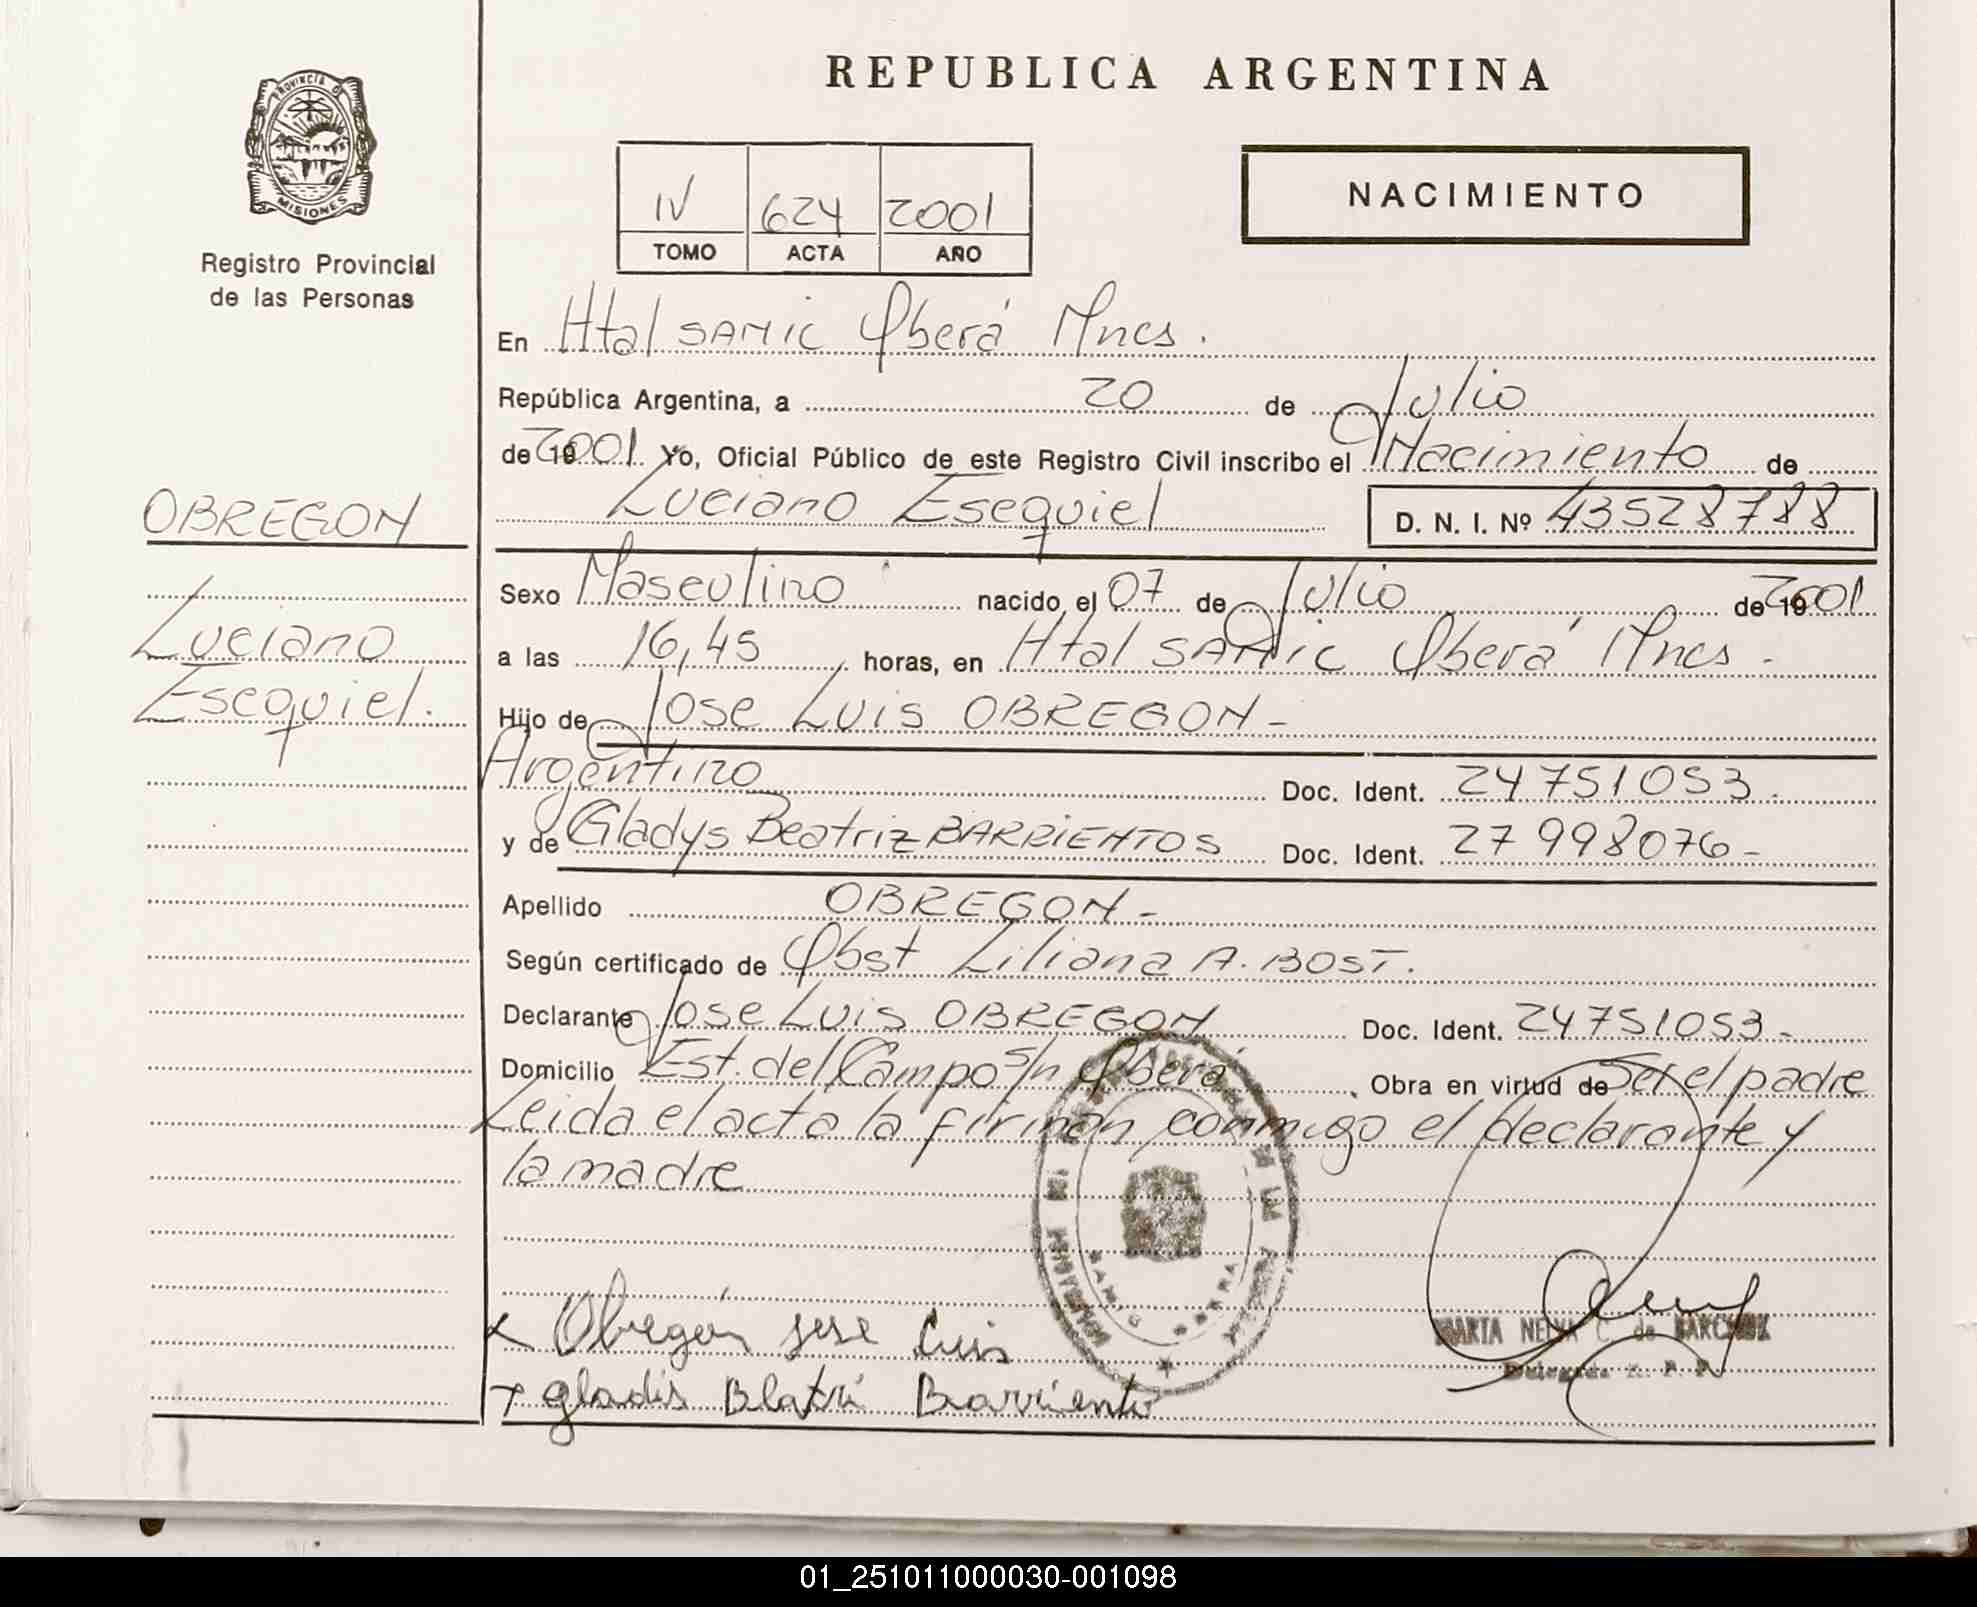 REPUBLICA ARGENTINA
PROVINCIA DE
MISIONES
Registro Provincial
de las Personas
IV 624 2001
TOMO ACTA AÑO
NACIMIENTO
En Htal SAMIC Oberá Mnes.
República Argentina, a 20 de Julio
de 2001 Yo, Oficial Público de este Registro Civil inscribo el Nacimiento de
Luciano Esequiel D. N. I. Nº 43528788
OBREGON
Luciano
Esequiel.
Sexo Masculino nacido el 07 de Julio de 2001
a las 16,45 horas, en Htal SAMIC Oberá Mnes.
Hijo de Jose Luis OBREGON-
Argentino Doc. Ident. 24751053.
y de Gladys Beatriz BARRIENTOS Doc. Ident. 27998076-
Apellido OBREGON-
Según certificado de Obst Liliana A. BOST.
Declarante Jose Luis OBREGON Doc. Ident. 24751053-
Domicilio Est. del Campo s/n Oberá, Obra en virtud de Ser el padre
Leida el acta la firman conmigo el declarante y
la madre
x Obregón jose Luis
x gladis Blatri Barriento
MARTA C. de
Delegada R. P. P.
01_251011000030-001098